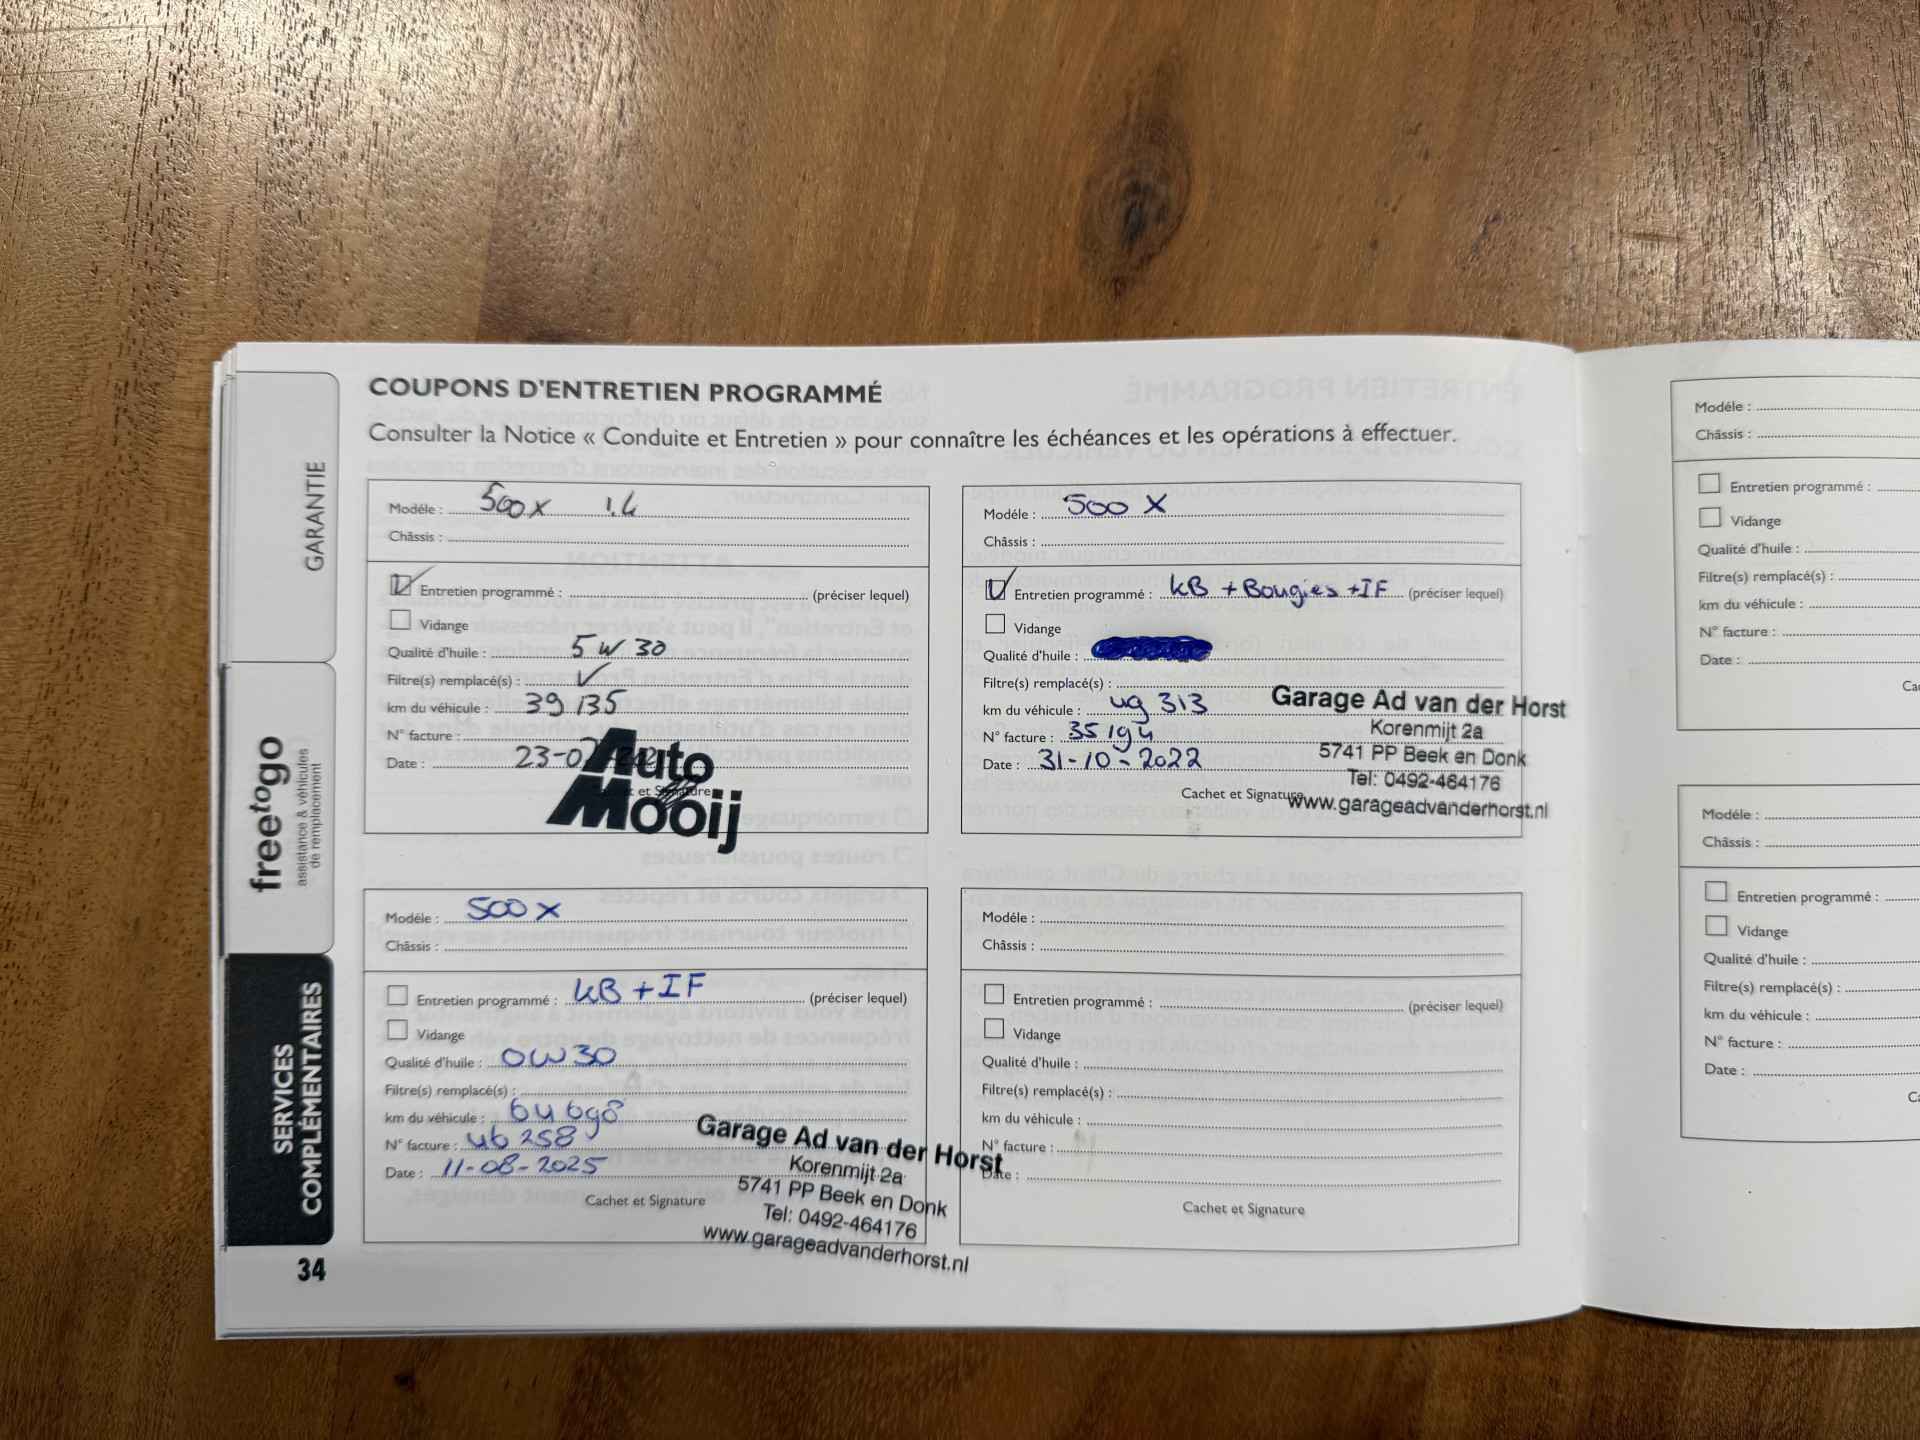 COUPONS D'ENTRETIEN PROGRAMMÉ
Consulter la Notice « Conduite et Entretien » pour connaître les échéances et les opérations à effectuer.
GARANTIE
freetogo
assistance & véhicules
de remplacement
SERVICES
COMPLÉMENTAIRES
34
Modéle : 500x 1.4
Châssis :
Entretien programmé : (préciser lequel)
Vidange
Qualité d'huile : 5W30
Filtre(s) remplacé(s) : ✓
km du véhicule : 39135
N° facture :
Date : 23-0
Cachet et Signature
Auto
Mooij
Modéle : 500 X
Châssis :
Entretien programmé : KB + Bougies + IF (préciser lequel)
Vidange
Qualité d'huile :
Filtre(s) remplacé(s) :
km du véhicule : 49 313
N° facture : 35194
Date : 31-10-2022
Cachet et Signature
Garage Ad van der Horst
Korenmijt 2a
5741 PP Beek en Donk
Tel: 0492-464176
www.garageadvanderhorst.nl
Modéle : 500 x
Châssis :
Entretien programmé : KB + IF (préciser lequel)
Vidange
Qualité d'huile : 0W30
Filtre(s) remplacé(s) :
km du véhicule : 64698
N° facture : 46258
Date : 11-08-2025
Cachet et Signature
Garage Ad van der Horst
Korenmijt 2a
5741 PP Beek en Donk
Tel: 0492-464176
www.garageadvanderhorst.nl
Modéle :
Châssis :
Entretien programmé : (préciser lequel)
Vidange
Qualité d'huile :
Filtre(s) remplacé(s) :
km du véhicule :
N° facture :
Date :
Cachet et Signature
Modéle :
Châssis :
Entretien programmé :
Vidange
Qualité d'huile :
Filtre(s) remplacé(s) :
km du véhicule :
N° facture :
Date :
Ca
Modéle :
Châssis :
Entretien programmé :
Vidange
Qualité d'huile :
Filtre(s) remplacé(s) :
km du véhicule :
N° facture :
Date :
Ca